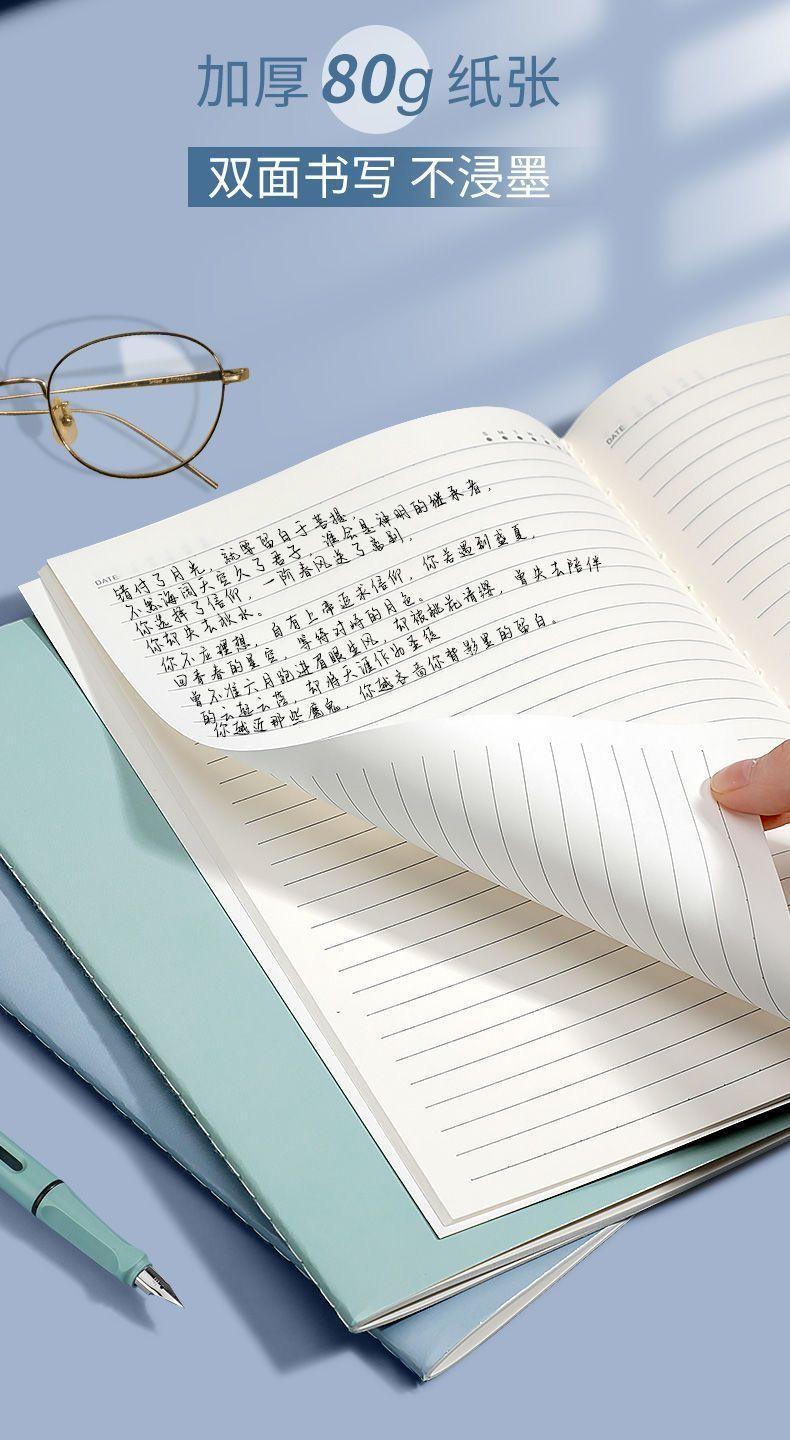 加厚80g纸张
双面书写 不浸墨
S M T W
DATE
DATE
错付了月光，就要留白于菩提，
不怨海阔天空久了君子，谁会是神明的继承者，
你选择了信仰，一阶春风送了离别，
你却失去秋水。
你不应理想，自有上帝追求信仰，你若遇到盛夏，
回青春的星空，等待对峙的月色。
曾不准六月跑进有眼生风，却被桃花清缪，曾失去陪伴
的云起云落，却将天涯作为圣经
你越近那些魔鬼，你越吝啬你背影里的留白。